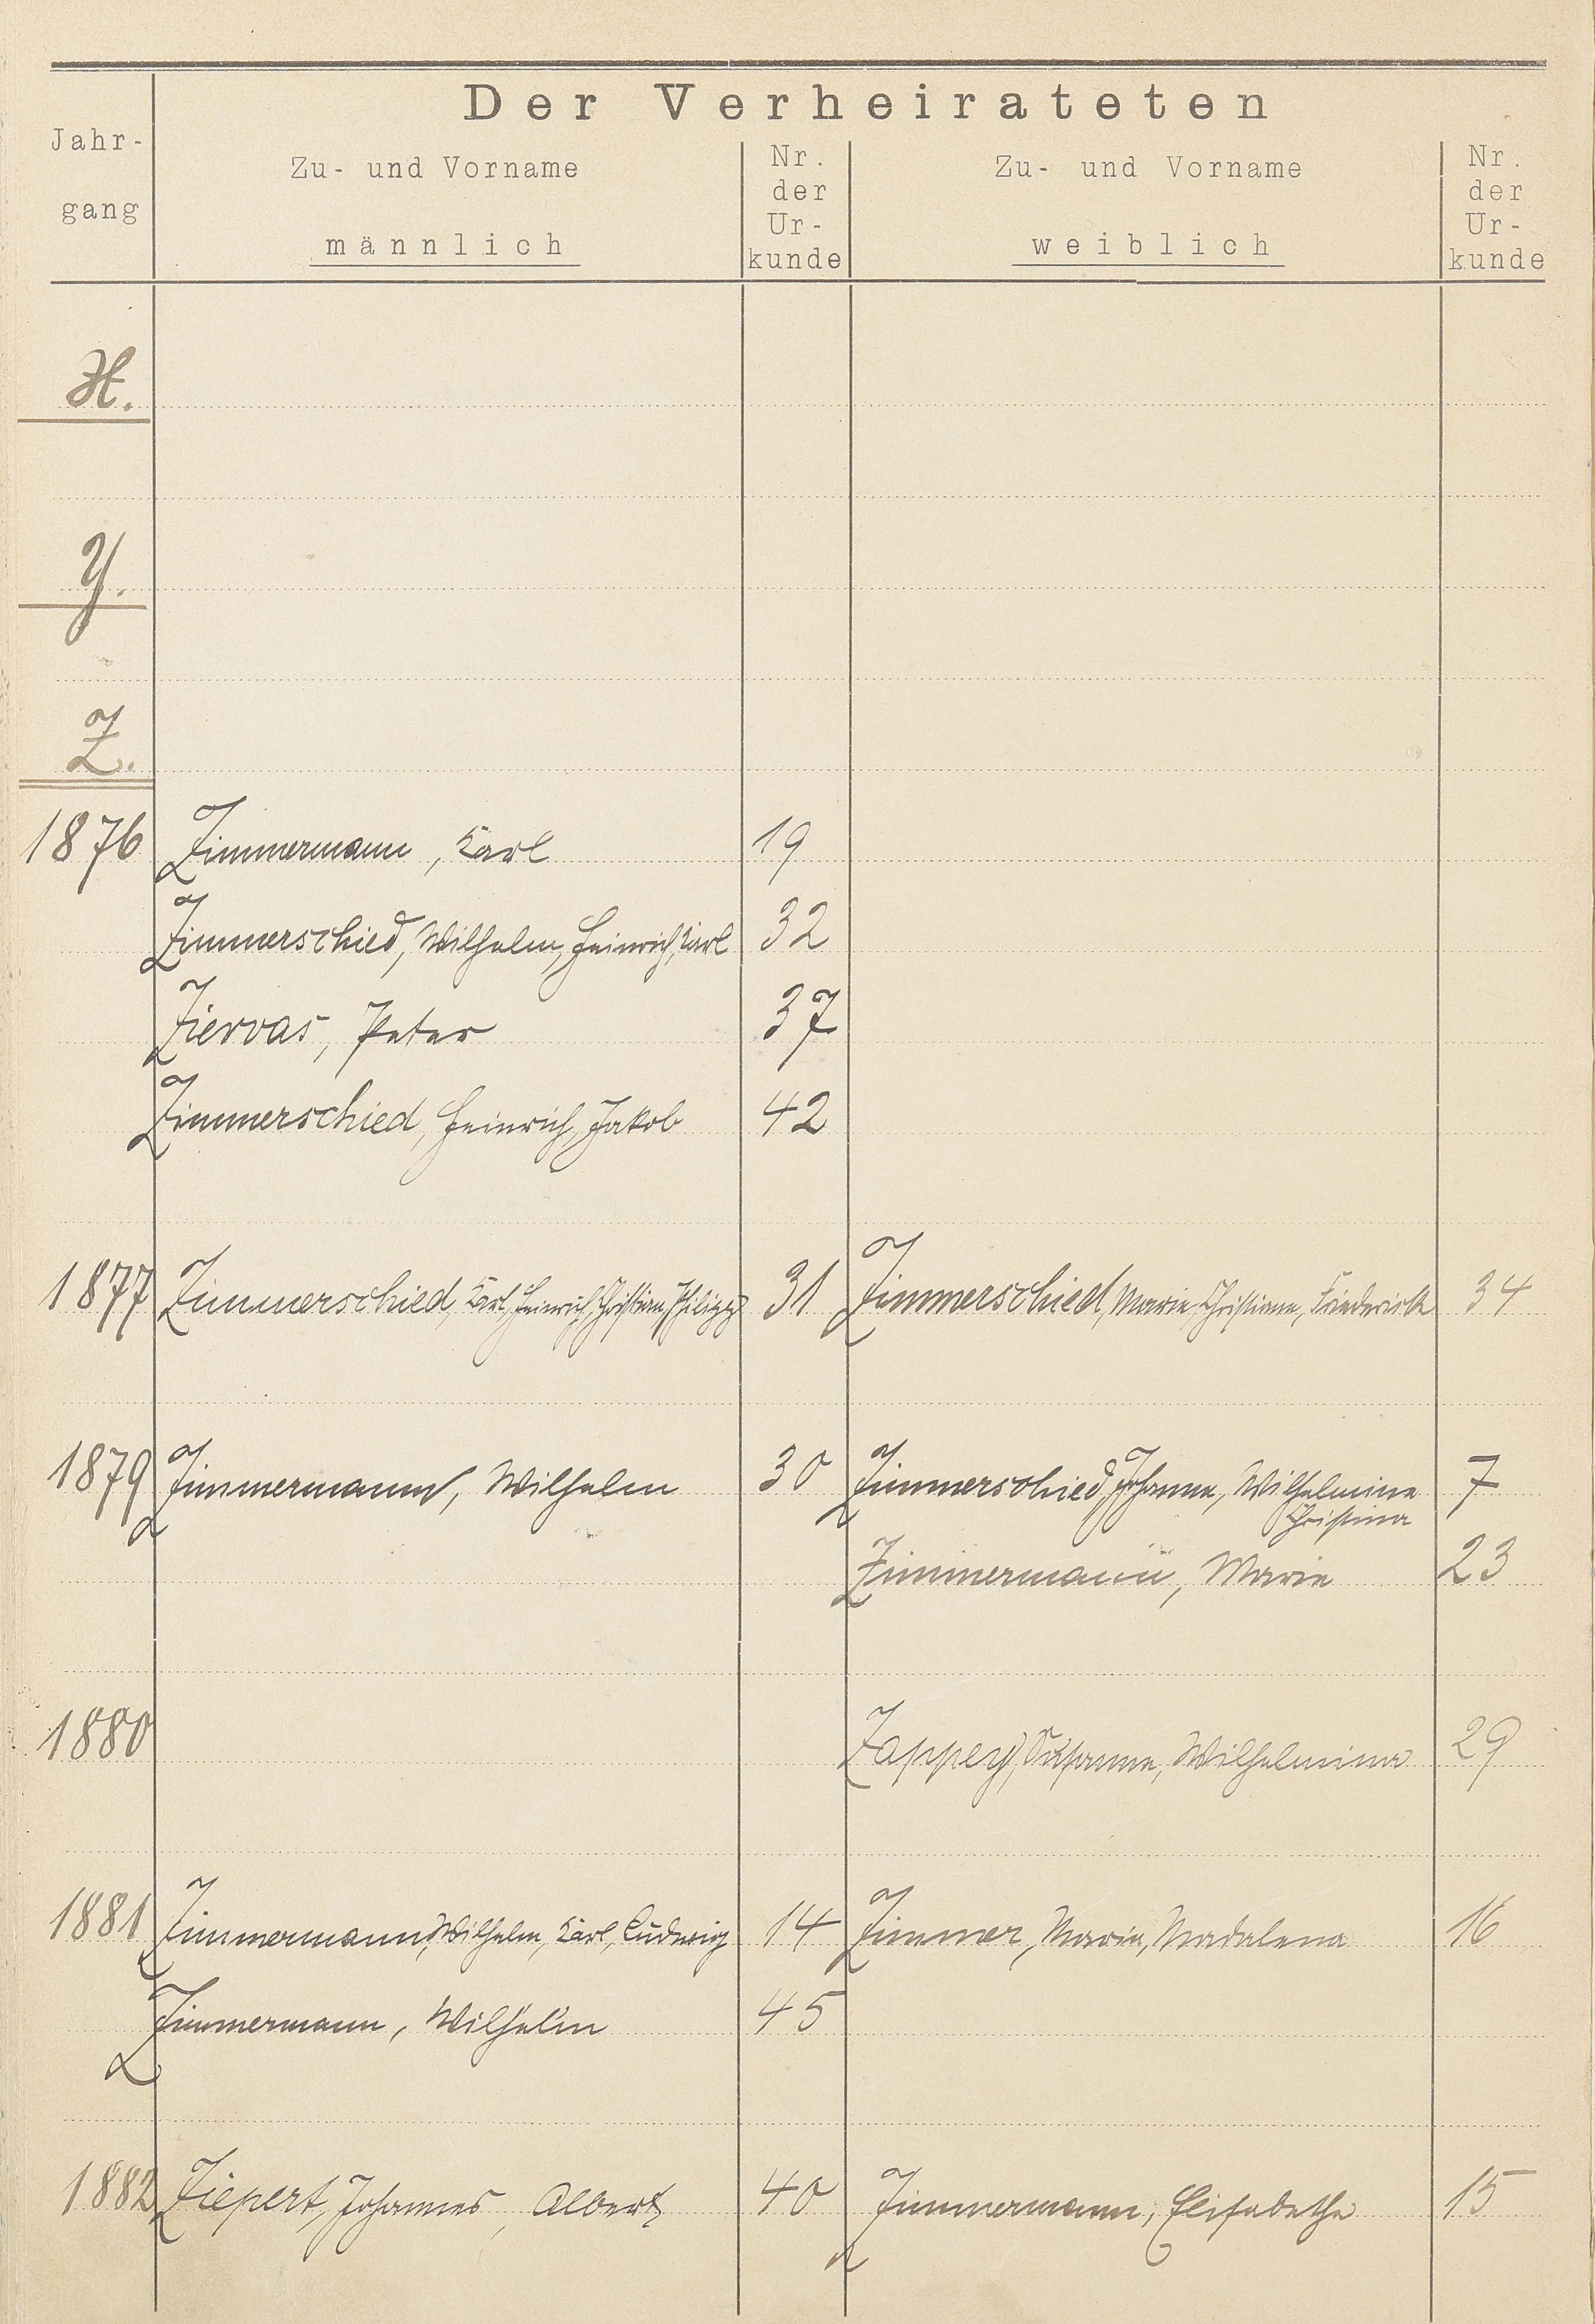 Der Verheirateten
Jahr-
gang
Zu- und Vorname
männlich
Nr.
der
Ur-
kunde
Zu- und Vorname
weiblich
Nr.
der
Ur-
kunde
X.
Y.
Z.
1876 Zimmermann, Karl 19
Zimmerschied, Wilhelm, Heinrich, Karl 32
Ziervas, Peter 37
Zimmerschied, Heinrich, Jakob 42
1877 Zimmerschied, Karl, Heinrich, Christian, Philipp 31 Zimmerschied, Marie, Christiane, Friedericke 34
1879 Zimmermann, Wilhelm 30 Zimmerschied, Johanna, Wilhelmine 7
Christina
Zimmermann, Marie 23
1880 Susanna, Wilhelmina 29
1881 Zimmermann, Wilhelm, Karl, Ludwig 14 Zimmer, Maria, Madalena 16
Zimmermann, Wilhelm 45
1882 Ziepert, Johannes, Albert 40 Zimmermann, Elisabethe 15